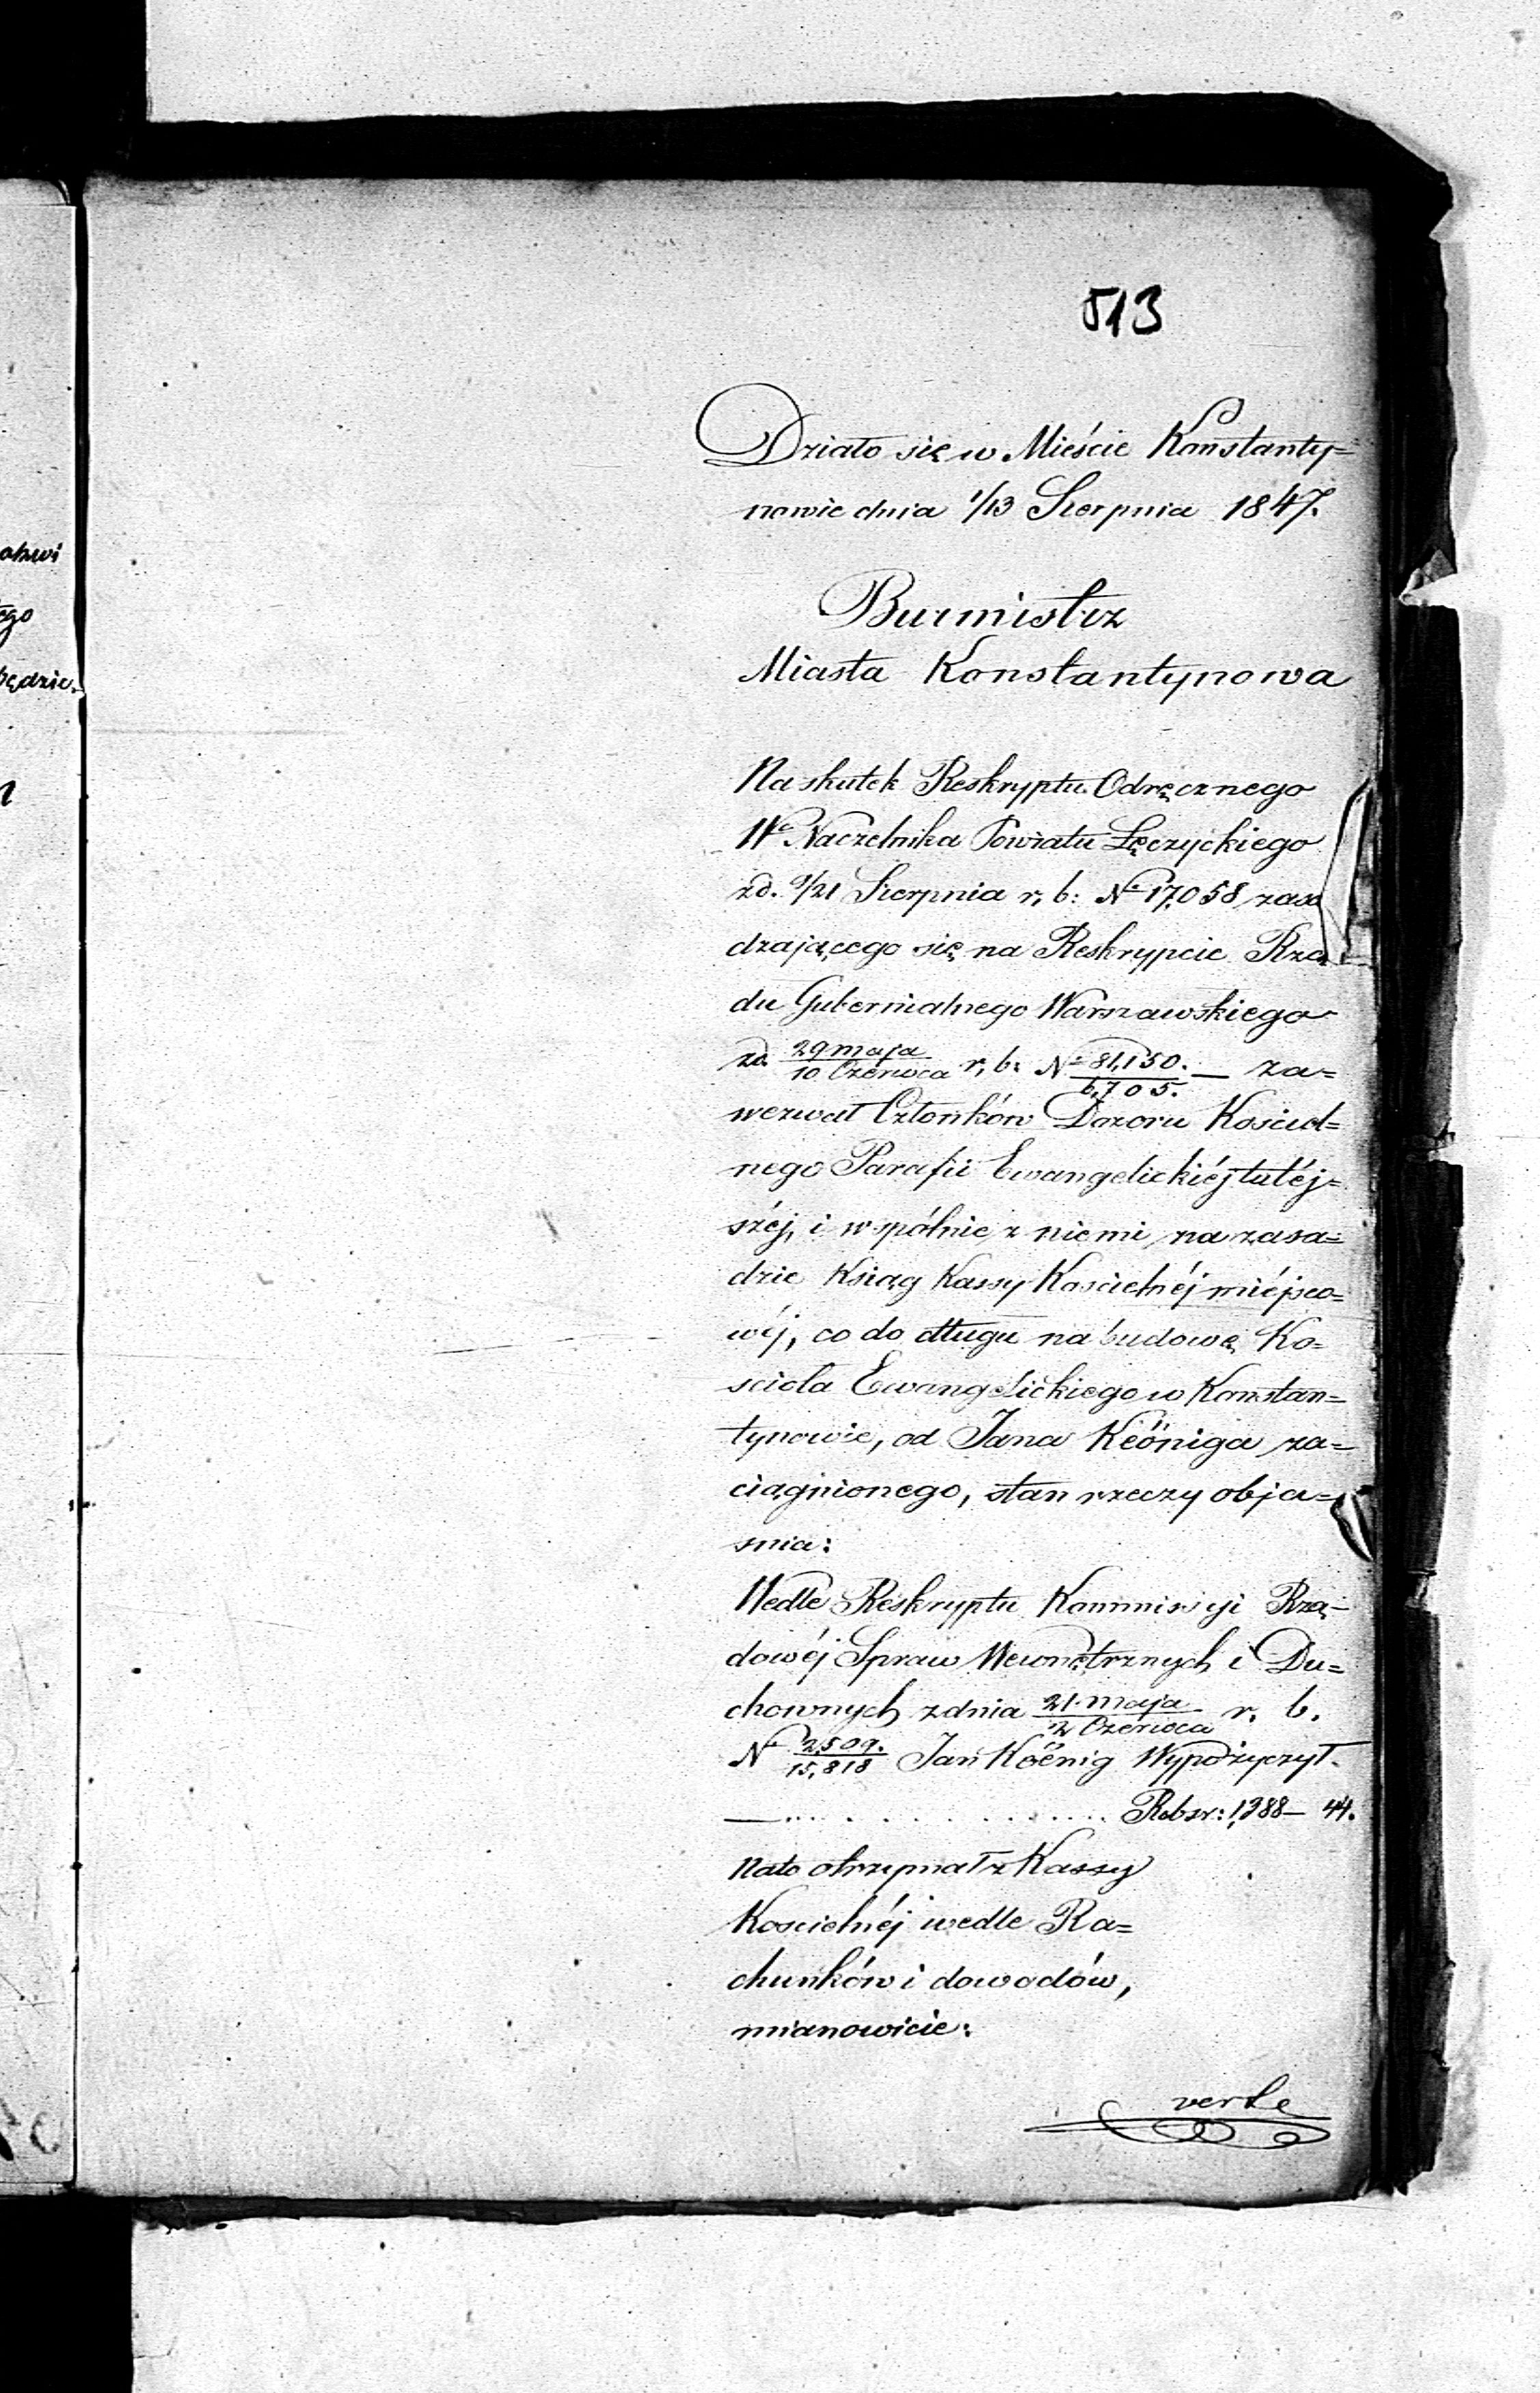 ego
będzie
513
Działo się w Mieście Konstanty=
nowie dnia 1/13 Sierpnia 1847.
Burmistrz
Miasta Konstantynowa
Na skutek Reskryptu Odręcznego
Wo Naczelnika Powiatu Łęczyckiego
zd. 9/21 Sierpnia r, b: No 17,058 zasa
dzającego się na Reskrypcie Rzą
du Gubernialnego Warszawskiego
zd. 29 maja / 10 Czerwca r, b: No 81,150. / 6,705. — za=
wezwał Członków Dozoru Kościel=
nego Parafii Ewangelickiéj tutéj=
széj, i wspólnie z niemi na zasa=
dzie Ksiąg Kassy Kościelnéj miéjsco=
wéj, co do długu na budowę Ko=
scioła Ewangelickiego w Konstan=
tynowie, od Jana Keöniga za=
ciągnionego, stan rzeczy obja=
snia:
Wedle Reskryptu Kommissyi Rzą=
dowéj Spraw Wewnętrznych i Du=
chownych z dnia 21 maja / 2 Czerwca r. b.
No 2,509. / 15,818 Jan Köenig Wypożyczył.
— . . . . . . . . . . . Rubsr: 1,388 — 44.
Nato otrzymał z Kassy
Koscielnéj wedle Ra=
chunków i dowodów,
mianowicie:
verte